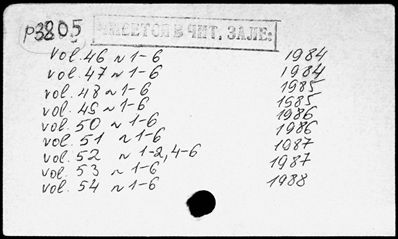 р3805
ИМЕЕТСЯ В ЧИТ. ЗАЛЕ:
vol. 46 N 1-6 1984
vol. 47 N 1-6 1984
vol. 48 N 1-6 1985
vol. 49 N 1-6 1985
vol. 50 N 1-6 1986
vol. 51 N 1-6 1986
vol. 52 N 1-2, 4-6 1987
vol. 53 N 1-6 1987
vol. 54 N 1-6 1988